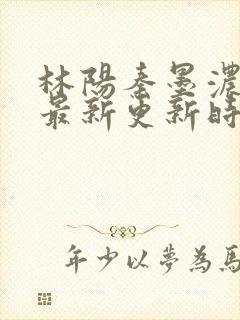 林陽秦墨濃
最新更新時
年少以夢為馬